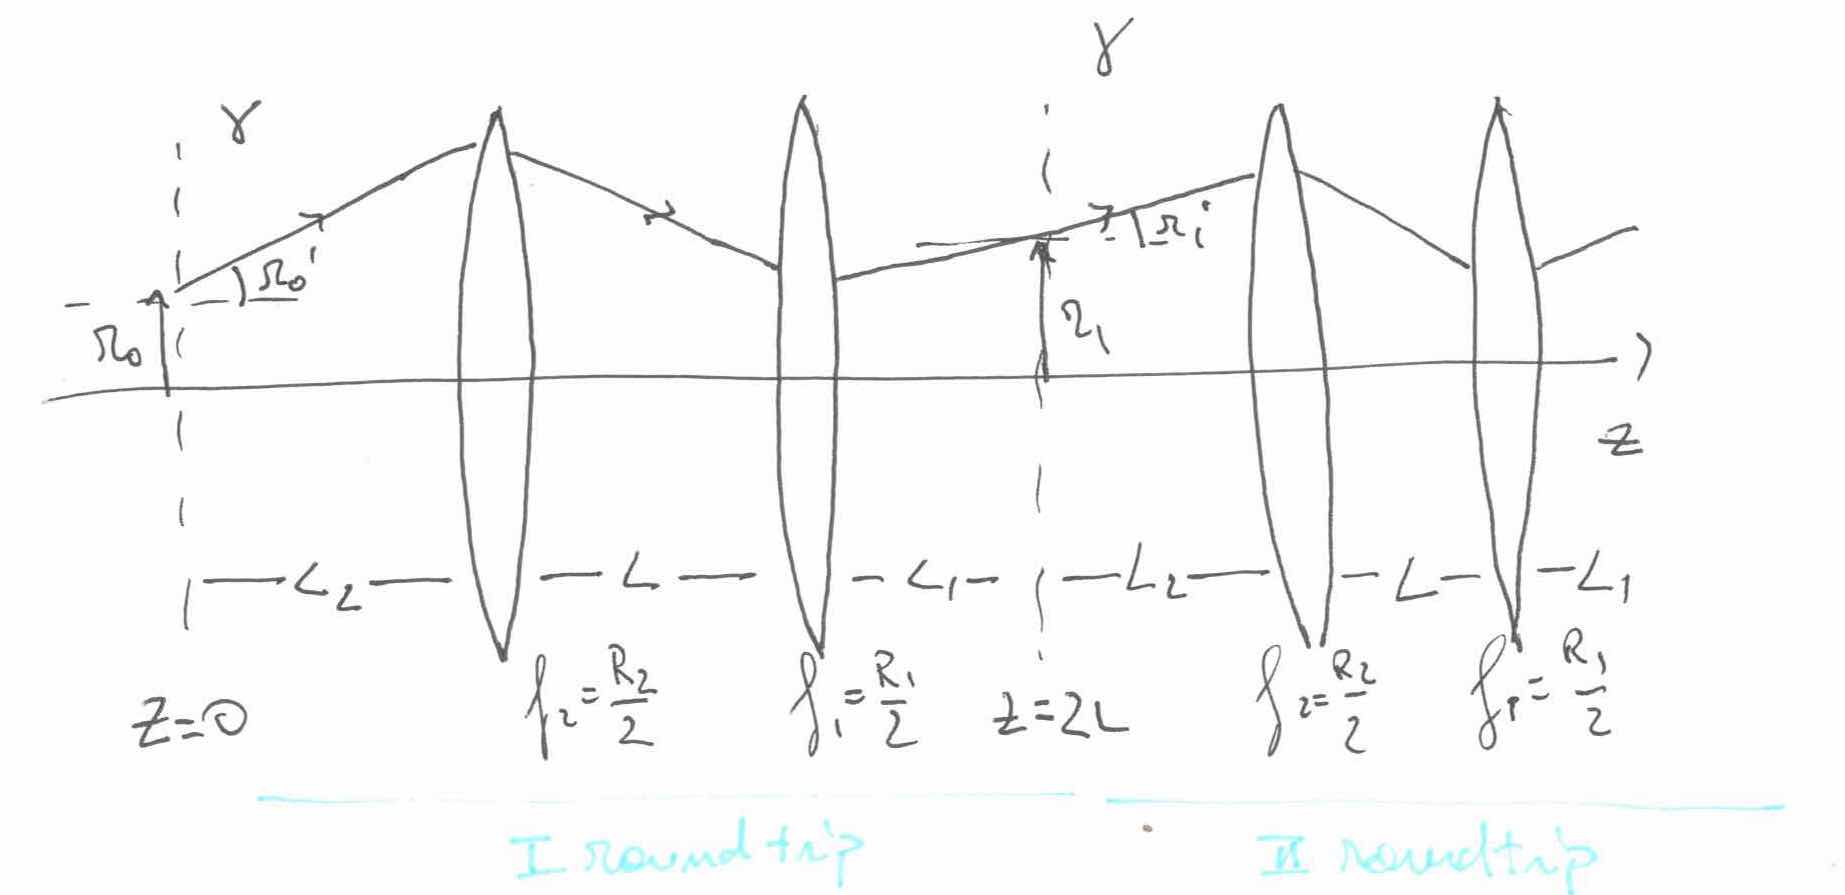 γ
γ
r₀'
r₁'
r₀
r₁
z
L₂ L L₁ L₂ L L₁
z=0 f₂=R₂/2 f₁=R₁/2 z=2L f₂=R₂/2 f₁=R₁/2
I roundtrip II roundtrip